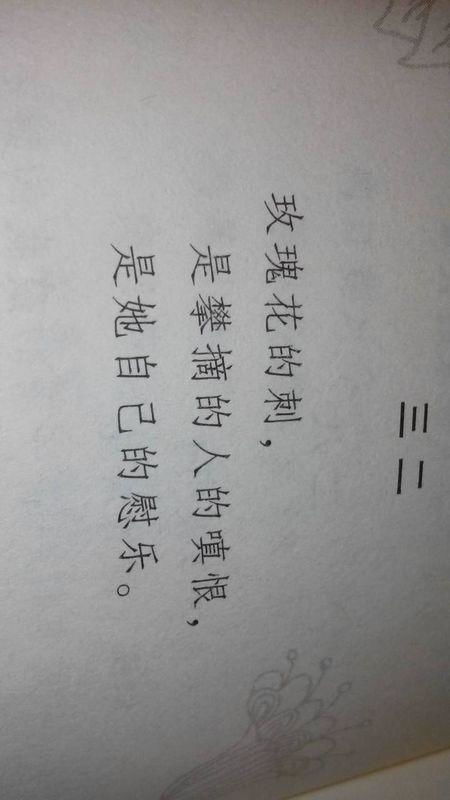 三二
玫瑰花的刺，
是攀摘的人的嗔恨，
是她自己的慰乐。